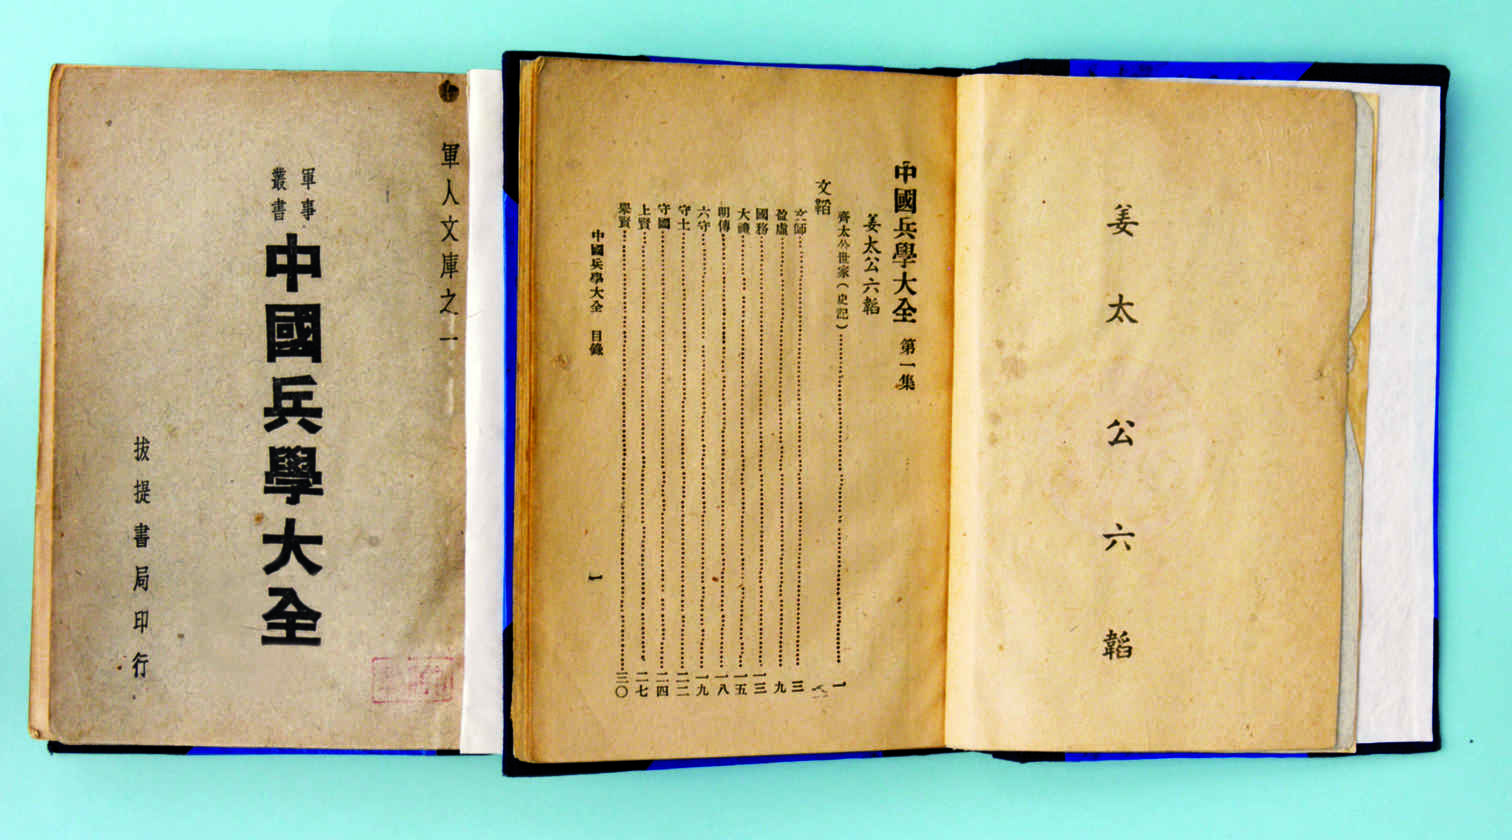 軍人文庫之一
軍事
叢書
中國兵學大全
拔提書局印行
姜太公六韜
中國兵學大全 第一集
姜太公六韜
齊太公世家（史記）……一
文韜
文師……三
盈虛……九
國務……一三
大禮……一五
明傳……一八
六守……一九
守土……二二
守國……二四
上賢……二七
舉賢……三〇
中國兵學大全 目錄 一